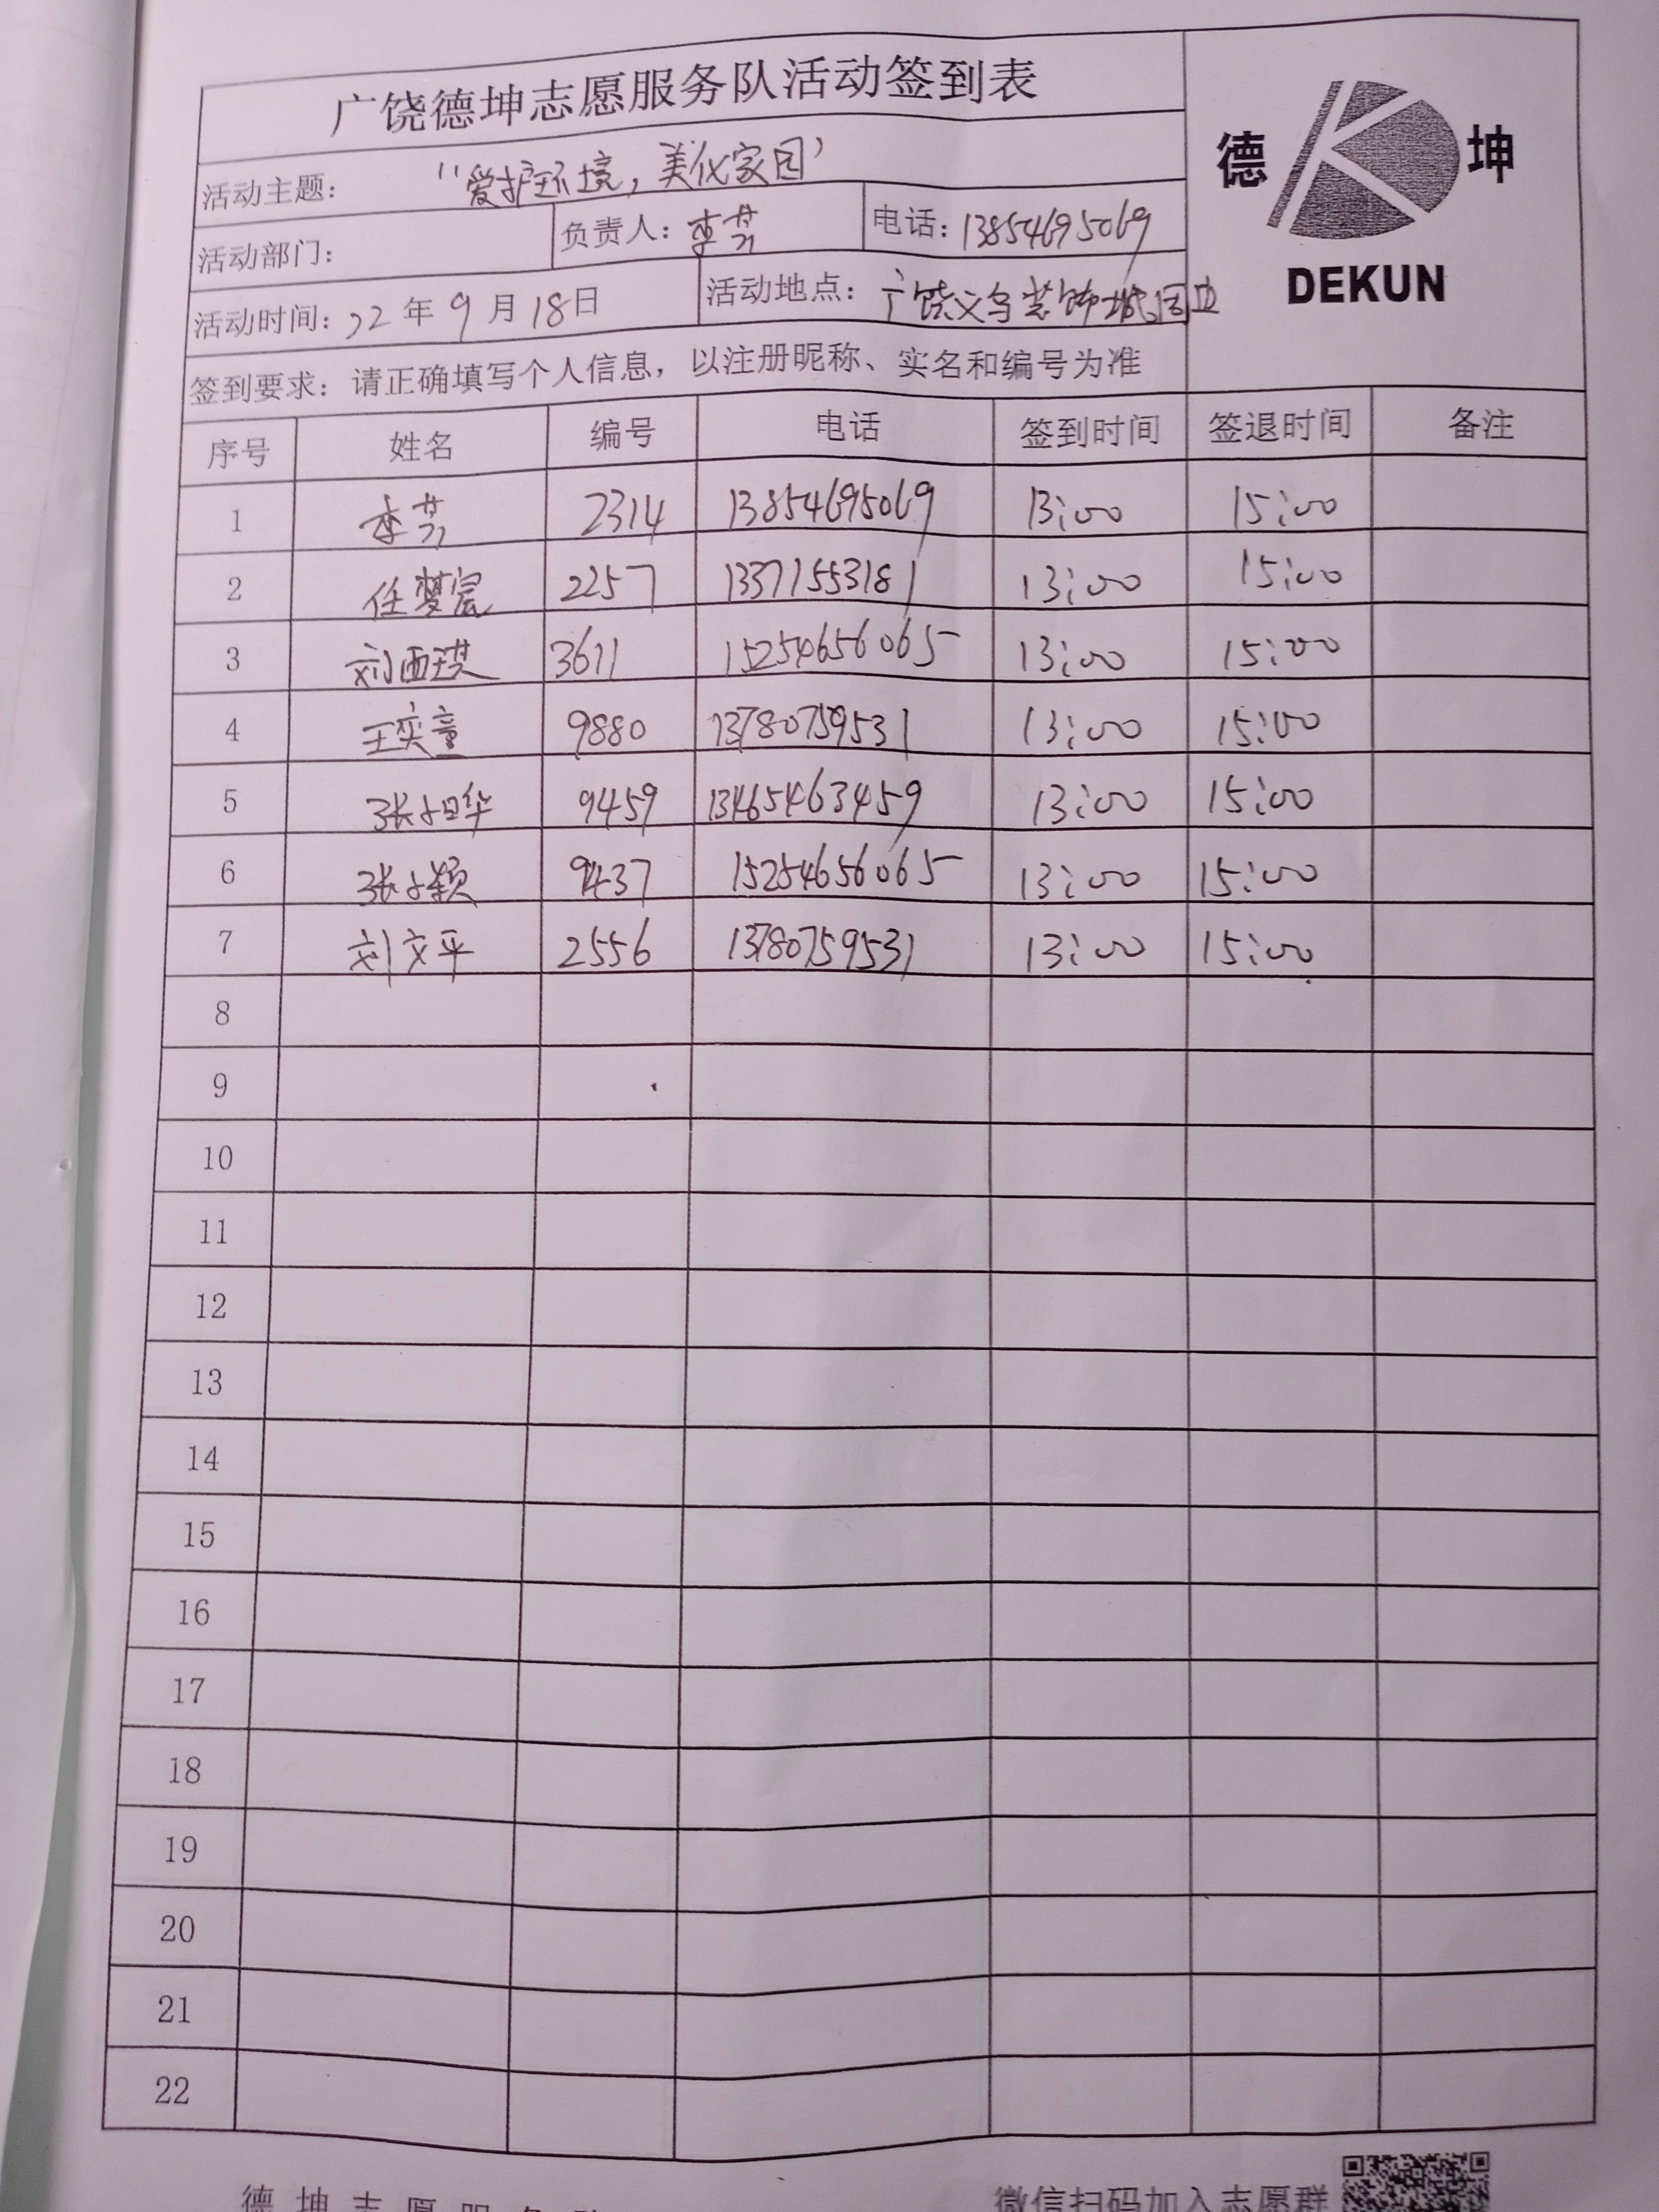 广饶德坤志愿服务队活动签到表
德 坤
DEKUN
活动主题： “爱护环境，美化家园”
活动部门： 负责人：李芳 电话：13854695069
活动时间：22年9月18日 活动地点：广饶义乌装饰城周边
签到要求：请正确填写个人信息，以注册昵称、实名和编号为准
序号 姓名 编号 电话 签到时间 签退时间 备注
1 李芳 2314 13854695069 13:00 15:00
2 任梦宸 2257 13371553181 13:00 15:00
3 刘西琪 3611 15254656065 13:00 15:00
4 王奕童 9880 13780759531 13:00 15:00
5 张 9459 13465463459 13:00 15:00
6 张 颖 9437 15254656065 13:00 15:00
7 刘文平 2556 13780759531 13:00 15:00
8
9
10
11
12
13
14
15
16
17
18
19
20
21
22
德坤志愿服务队 微信扫码加入志愿群